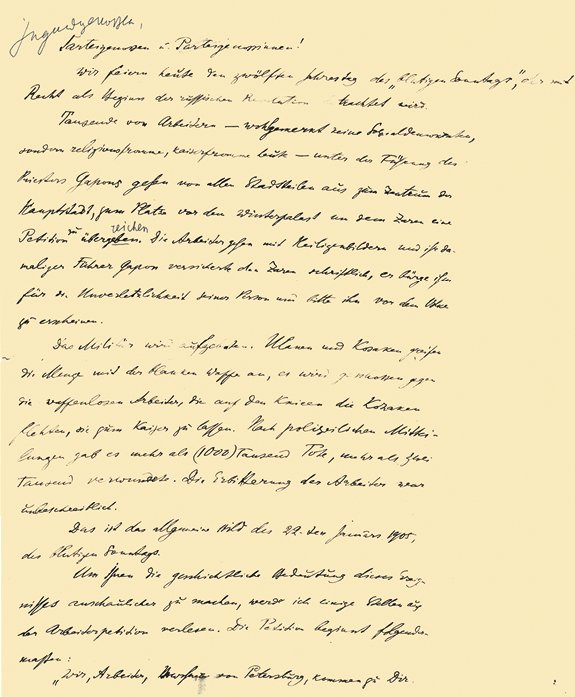 Jugendgenossen,
Parteigenossen u. Parteigenossinnen!
Wir feiern heute den zwölften Jahrestag des „blutigen Sonntags", der mit
Recht als Beginn der russischen Revolution betrachtet wird.
Tausende von Arbeitern — wohlgemerkt keine Sozialdemokraten,
sondern religionsfromme, kaiserfromme Leute — unter der Führung des
Priesters Gapons gehen von allen Stadtteilen aus zum Zentrum der
Hauptstadt, zum Platze vor dem Winterpalast um dem Zaren eine
Petition zu überreichen. Die Arbeiter gehen mit Heiligenbildern und ihr da-
maliger Führer Gapon versicherte den Zaren schriftlich, er bürge ihm
für die Unverletzlichkeit seiner Person und bitte ihn vor dem Volke
zu erscheinen.
Das Militär wird aufgeboten. Ulanen und Kosaken greifen
die Menge mit der blanken Waffe an, es wird geschossen gegen
die waffenlosen Arbeiter, die auf den Knieen die Kosaken
flehten, sie zum Kaiser zu lassen. Nach polizeilichen Mittei-
lungen gab es mehr als (1000) Tausend Tote, mehr als zwei
Tausend verwundete. Die Erbitterung der Arbeiter war
unbeschreiblich.
Das ist das allgemeine Bild des 22-ten Januars 1905,
des blutigen Sonntags.
Um Ihnen die geschichtliche Bedeutung dieses Ereig-
nisses anschaulicher zu machen, werde ich einige Stellen aus
der Arbeiterpetition verlesen. Die Petition beginnt folgender-
massen:
„Wir, Arbeiter, von Petersburg, kommen zu Dir.